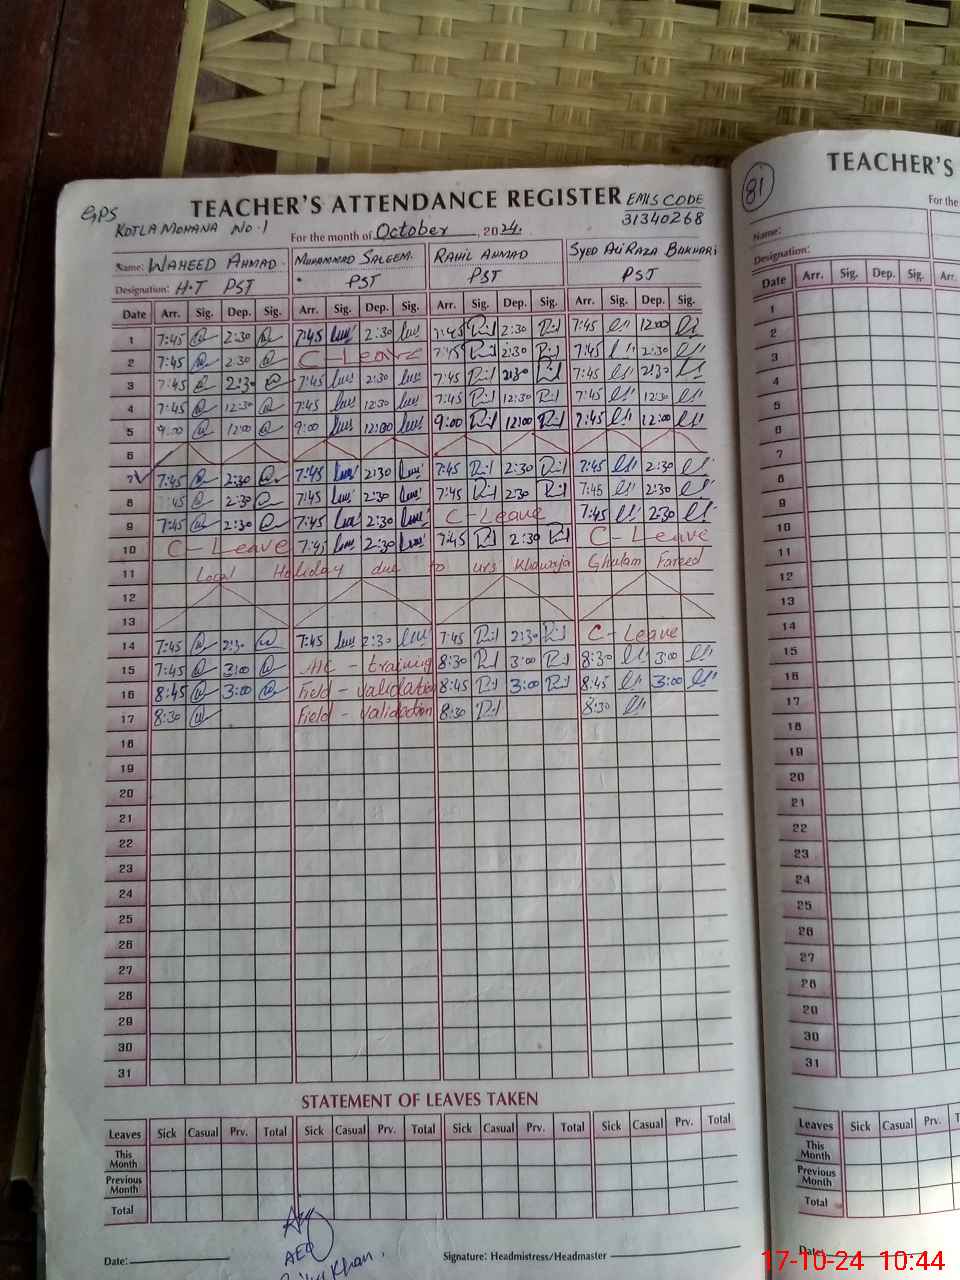 GPS
KOTLA MOHANA NO.1
TEACHER'S ATTENDANCE REGISTER
EMIS CODE
31340268
For the month of October, 2024.
Name: WAHEED AHMAD. MUHAMMAD SALEEM. RAHIL AHMAD SYED ALI RAZA BUKHARI
Designation: H.T PST PST PST PST
Date Arr. Sig. Dep. Sig. Arr. Sig. Dep. Sig. Arr. Sig. Dep. Sig. Arr. Sig. Dep. Sig.
1 7:45 2:30 7:45 2:30 7:45 2:30 7:45 12:00
2 7:45 2:30 C-Leave 7:45 2:30 7:45 2:30
3 7:45 2:30 7:45 2:30 7:45 2:30 7:45 2:30
4 7:45 12:30 7:45 12:30 7:45 12:30 7:45 12:30
5 9:00 12:00 9:00 12:00 9:00 12:00 7:45 12:00
6
7 7:45 2:30 7:45 2:30 7:45 2:30 7:45 2:30
8 7:45 2:30 7:45 2:30 7:45 2:30 7:45 2:30
9 7:45 2:30 7:45 2:30 C-Leave 7:45 2:30
10 C-Leave 7:45 2:30 7:45 2:30 C-Leave
11 Local Holiday due to urs Khawaja Ghulam Fareed
12
13
14 7:45 2:30 7:45 2:30 7:45 2:30 C-Leave
15 7:45 3:00 training 8:30 3:00 8:30 3:00
16 8:45 3:00 Field-validation 8:45 3:00 8:45 3:00
17 8:30 Field-validation 8:30 8:30
18
19
20
21
22
23
24
25
26
27
28
29
30
31
STATEMENT OF LEAVES TAKEN
Leaves Sick Casual Prv. Total Sick Casual Prv. Total Sick Casual Prv. Total Sick Casual Prv. Total
This Month
Previous Month
Total
AEO
Khan.
Date:
Signature: Headmistress/Headmaster
81
TEACHER'S
For the
Name:
Designation:
Date Arr. Sig. Dep. Sig. Arr.
1
2
3
4
5
6
7
8
9
10
11
12
13
14
15
16
17
18
19
20
21
22
23
24
25
26
27
28
29
30
31
Leaves Sick Casual Prv.
This Month
Previous Month
Total
Date:
17-10-24 10:44